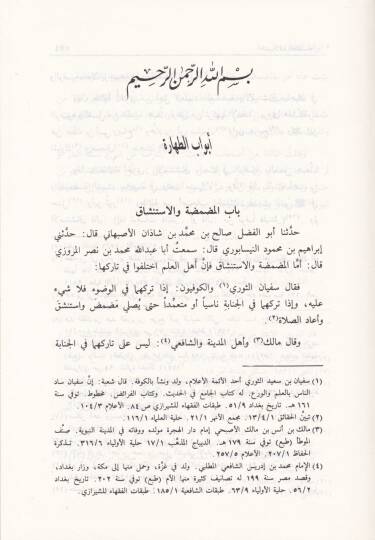 بسم الله الرحمن الرحيم
أبواب الطهارة
باب المضمضة والاستنشاق
حدّثنا أبو الفضل صالح بن محمّد بن شاذان الأصبهاني قال: حدّثني
إبراهيم بن محمود النيسابوري قال: سمعتُ أبا عبدالله محمد بن نصر المروزي
قال: أمّا المضمضة والاستنشاق فإنّ أهل العلم اختلفوا في تاركها:
فقال سفيان الثوري(١) والكوفيون: إذا تركهما في الوضوء فلا شيء
عليه، وإذا تركهما في الجنابة ناسياً أو متعمّداً حتى يُصلي مَضمضَ واستنشقَ
وأعاد الصلاة(٢).
وقال مالك(٣) وأهل المدينة والشافعي(٤): ليس على تاركهما في الجنابة
(١) سفيان بن سعيد الثوري أحد الأئمة الأعلام، ولد ونشأ بالكوفة. قال شعبة: إنّ سفيان ساد
الناس بالعلم والورع. له كتاب الجامع في الحديث. وكتاب الفرائض. مخطوط. توفي سنة
١٦١ هـ. تاريخ بغداد ٥١/٩. طبقات الفقهاء للشيرازي ص ٨٤. الأعلام ١٠٤/٣.
(٢) تبيّن الحقائق ١٣/٤٠١. مجمع الأنهر ٢١/١. حلية العلماء ١١٦/١.
(٣) مالك بن أنس بن مالك الأصبحي إمام دار الهجرة مولده ووفاته في المدينة النبوية. صنّف
الموطأ (طبع) توفي سنة ١٧٩ هـ. الديباج المذهّب ١٧/١ حلية الأولياء ٣١٦/٦. تذكرة
الحفاظ ٢٠٧/١. الأعلام ٢٥٧/٥.
(٤) الإمام محمد بن إدريس الشافعي المطلبي. ولد في غزّة، وحمل منها إلى مكة، وزار بغداد،
وقصد مصر سنة ١٩٩ له تصانيف كثيرة منها الأم (طبع) توفي سنة ٢٠٢. تاريخ بغداد
٥٦/٢. حلية الأولياء ٦٣/٩. طبقات الفقهاء للشيرازي ١٨٥/١.